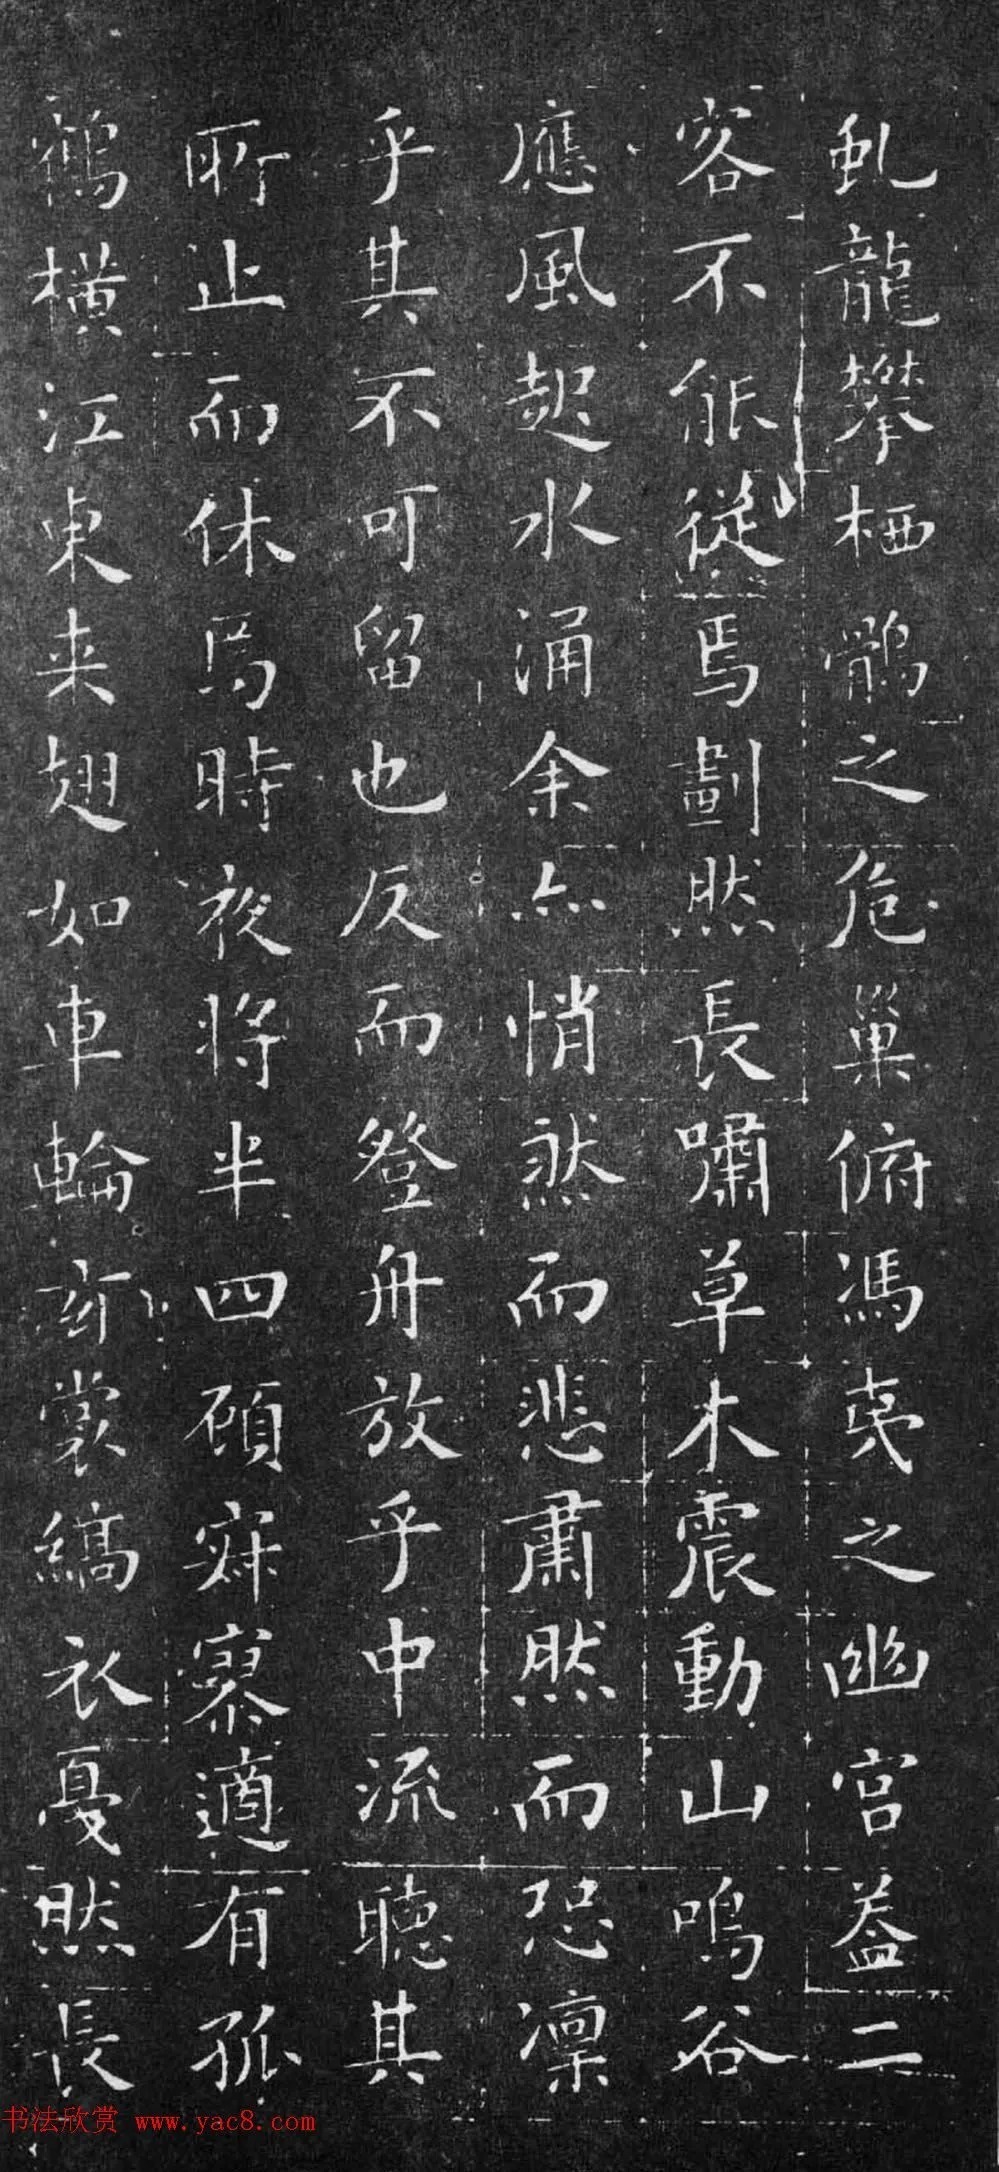 虬龍攀栖鶻之危巢俯馮夷之幽宫葢二
客不能從焉劃然長嘯草木震動山鳴谷
應風起水涌余亦悄然而悲肅然而恐凛
乎其不可留也反而登舟放乎中流聽其
所止而休焉時夜将半四顧寂寥適有孤
鶴横江東来翅如車輪玄裳縞衣戛然長
书法欣赏 www.yac8.com